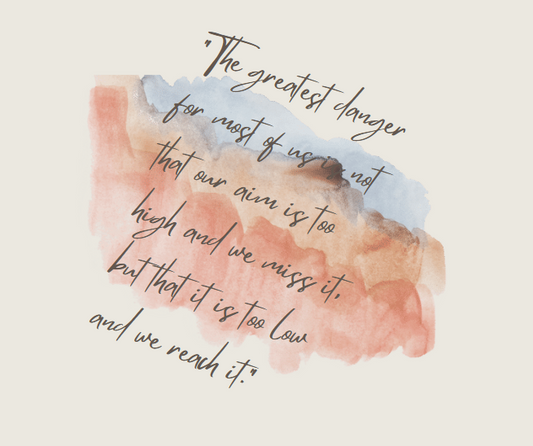 "The greatest danger
for most of us is not
that our aim is too
high and we miss it,
but that it is too low
and we reach it."